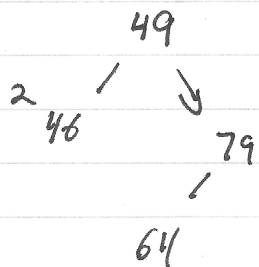 49
2
46
79
64